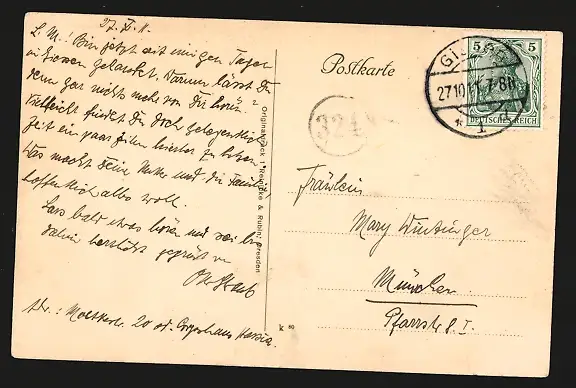 27. X. 11.
L. M.! Bin jetzt seit einigen Tagen
in Giessen gelandet. Warum lässt Du
denn gar nichts mehr von Dir hören?
Vielleicht findest Du doch gelegentlich
Zeit ein paar Zeilen hierher zu
Was macht Deine Mutter und die Familie
hoffentlich alles wohl.
Lass bald etwas hören und sei bis
dahin herzlichst gegrüßt von
Adr.: Moltkestr. 20
Originaldruck i. Reinicke & Rubin, Dresden
k 80
Postkarte
324
5 5
DEUTSCHES REICH
GIESSEN
27.10.11. 7-8N
* 1
Fräulein
Mary Wintinger
München
Pfarrstr. 8. I.